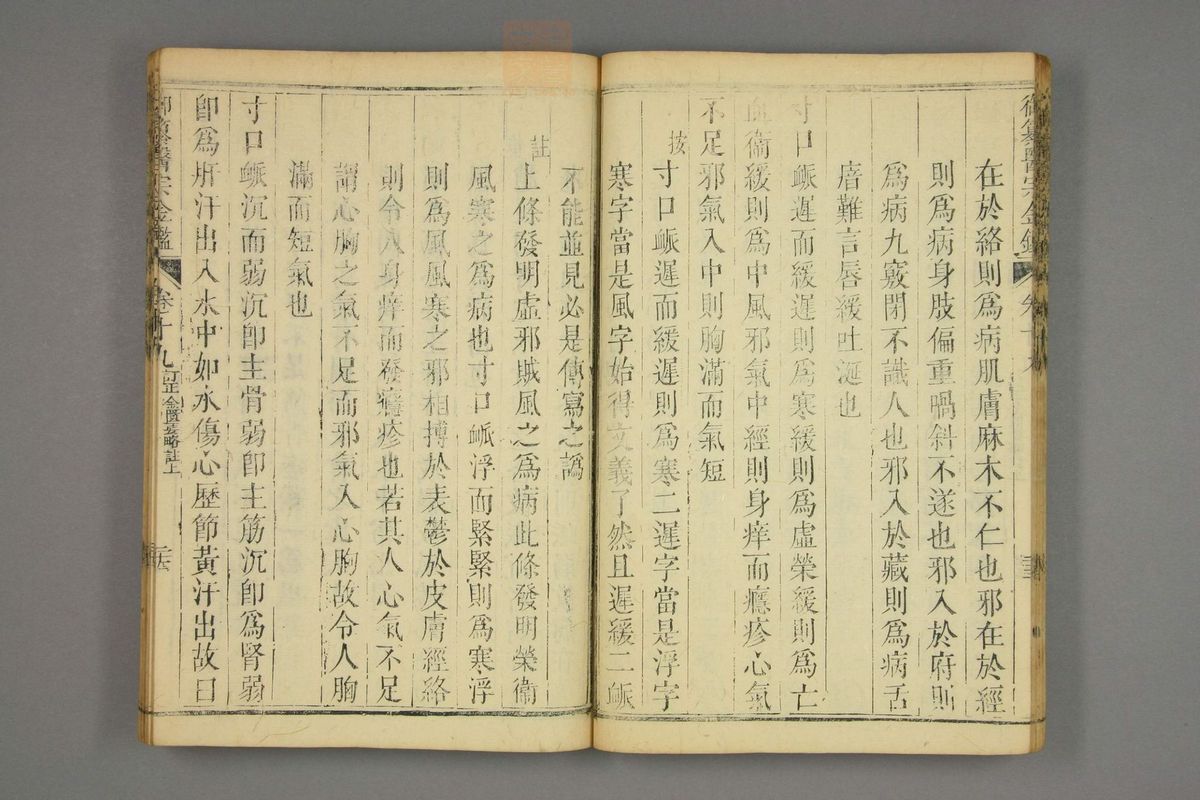 御纂醫宗金鑑 卷十九
在於絡則為病肌膚麻木不仁也邪在於經
則為病身肢偏重喎斜不遂也邪入於府則
為病九竅閉不識人也邪入於藏則為病舌
瘖難言唇緩吐涎也
寸口䘑遲而緩遲則為寒緩則為虛榮緩則為亡
血衞緩則為中風邪氣中經則身痒而癮疹心氣
不足邪氣入中則胸滿而氣短
按
寸口䘑遲而緩遲則為寒二遲字當是浮字
寒字當是風字始得文義了然且遲緩二䘑
不能並見必是傳寫之譌
註
上條發明虛邪賊風之為病此條發明榮衞
風寒之為病也寸口䘑浮而緊緊則為寒浮
則為風風寒之邪相摶於表鬱於皮膚經絡
則令人身痒而發癮疹也若其人心氣不足
謂心胸之氣不足而邪氣入心胸故令人胸
滿而短氣也
寸口䘑沉而弱沉卽主骨弱卽主筋沉卽為腎弱
卽為肝汗出入水中如水傷心歷節黃汗出故曰
御纂醫宗金鑑 卷十九 訂正金匱要略註上